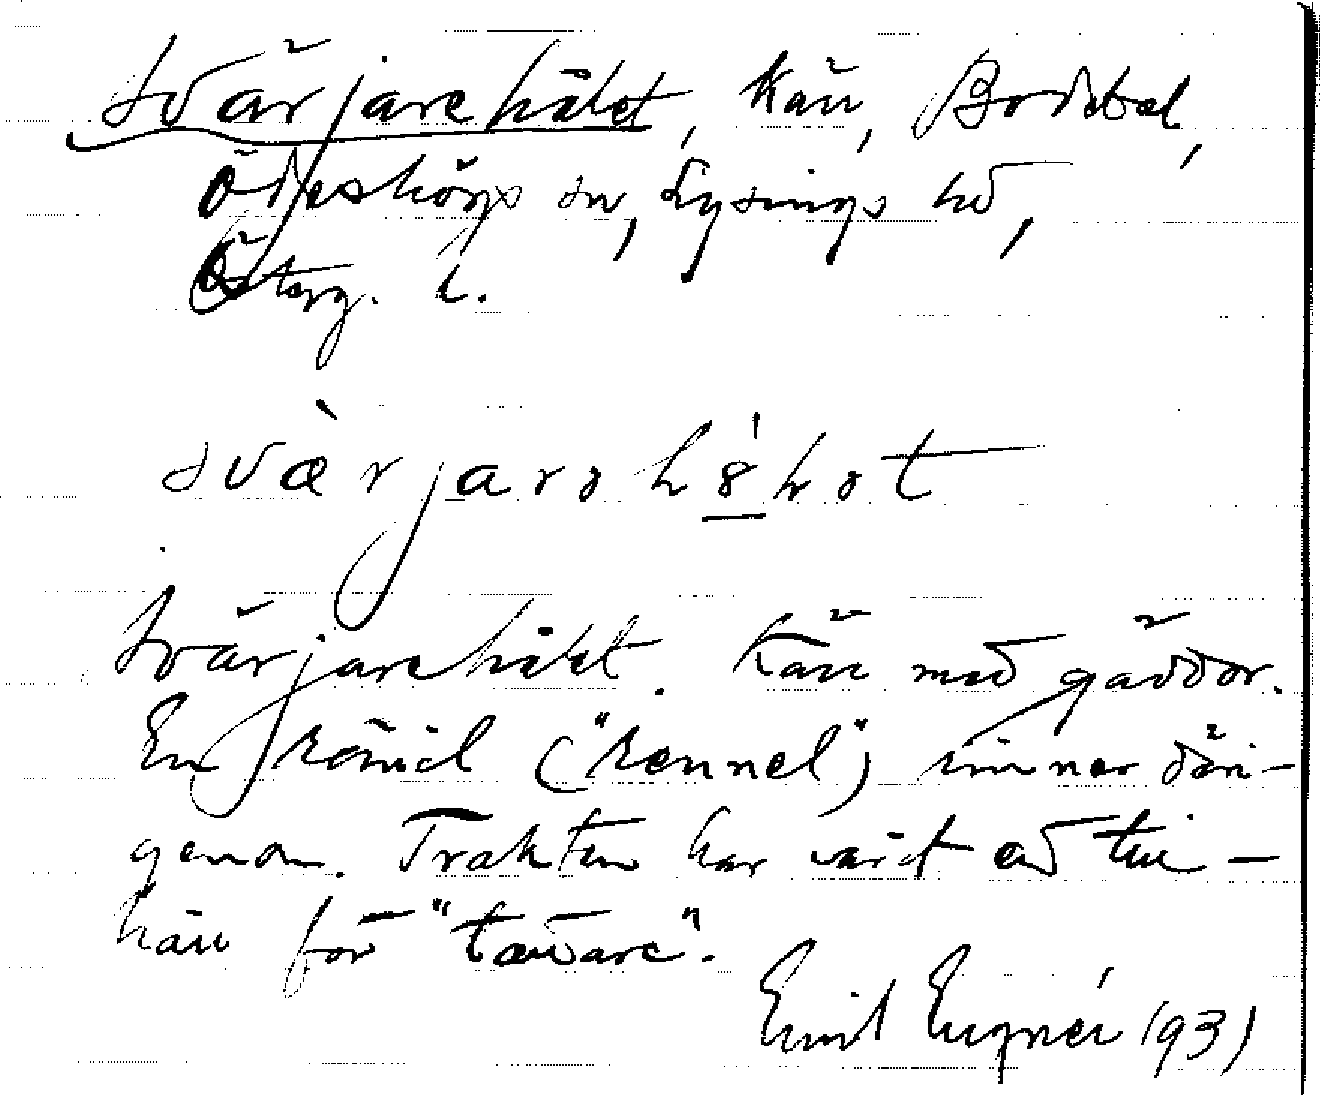 Svärjarehålet, kärr, Boddtal,
Ödeshögs sn, Lysings hd,
Österg. l.
svær jarə hȣ́lət
Svärjarehålet. Kärr med gäddor.
En rännil ("rennel") rinner däri-
genom. Trakten har varit ett till-
håll för "tattare".
Emil Eugnér 1931